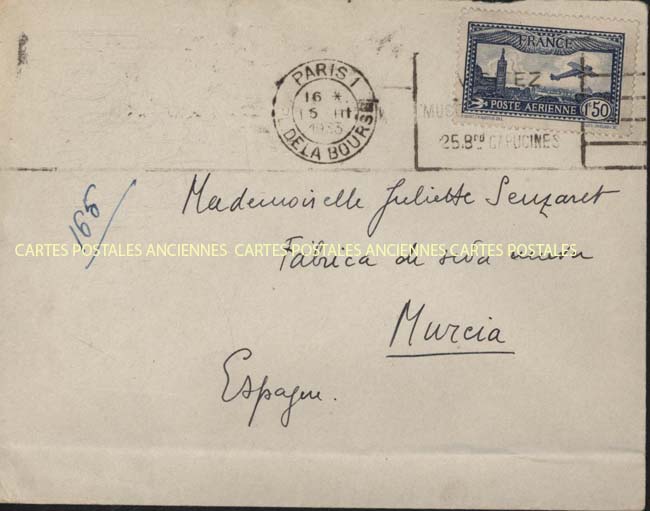 FRANCE
POSTE AERIENNE 1F50
PARIS 1
16 *
15 III
1933
R. DE LA BOURSE
EZ
MUS
25.Bᴿᴰ CAPUCINES
195
Mademoiselle Juliette Senzaret
CARTES POSTALES ANCIENNES CARTES POSTALES ANCIENNES CARTES POSTALES
Fabrica de seda
Murcia
Espagne.